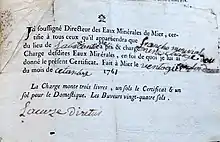 Jai soussigné Directeur des Eaux Minérales de Miet, cer-
tifie à tous ceux qu'il appartiendra que
du lieu de a pris & chargé
Charge desdites Eaux Minérales, en foi de quoi je lui ai
donné le présent Certificat. Fait à Miet le
du mois de octobre 1761
La Charge monte trois livres, un sol le Certificat & un
sol pour le Domestique. Les Buveurs vingt-quatre sols.